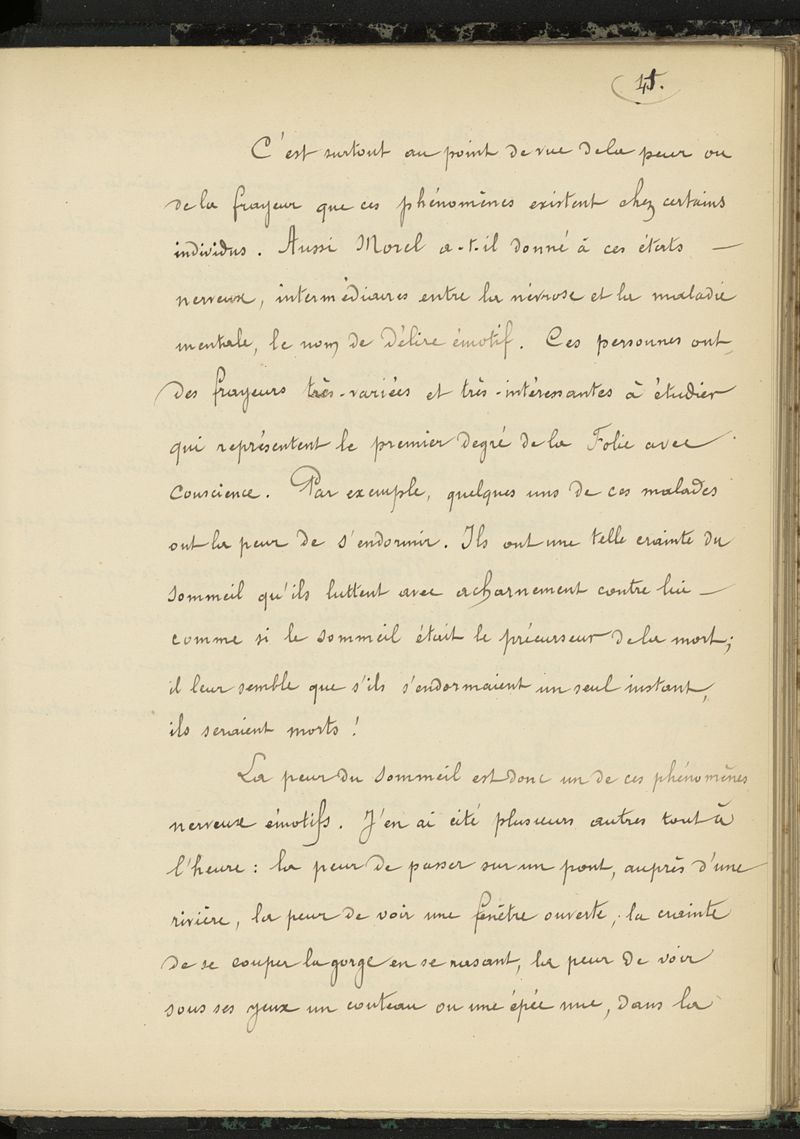 45.
C'est surtout au point de vue de la peur ou
de la frayeur que ces phénomènes existent chez certains
individus. Aussi Morel a-t-il donné à ces états —
nerveux, intermédiaires entre la névrose et la maladie
mentale, le nom de Délire émotif. Ces personnes ont
des frayeurs très-variées et très-intéressantes à étudier
qui représentent le premier degré de la Folie avec
Conscience. Par exemple, quelques uns de ces malades
ont la peur de s'endormir. Ils ont une telle crainte du
sommeil qu'ils luttent avec acharnement contre lui —
comme si le sommeil était le précurseur de la mort;
il leur semble que s'ils s'endormaient un seul instant,
ils seraient morts !
La peur du sommeil est donc un de ces phénomènes
nerveux émotifs. J'en ai cité plusieurs autres tout à
l'heure : la peur de passer sur un pont, auprès d'une
rivière, la peur de voir une fenêtre ouverte, la crainte
de se couper la gorge en se rasant, la peur de voir
sous ses yeux un couteau ou une épée nue, dans la